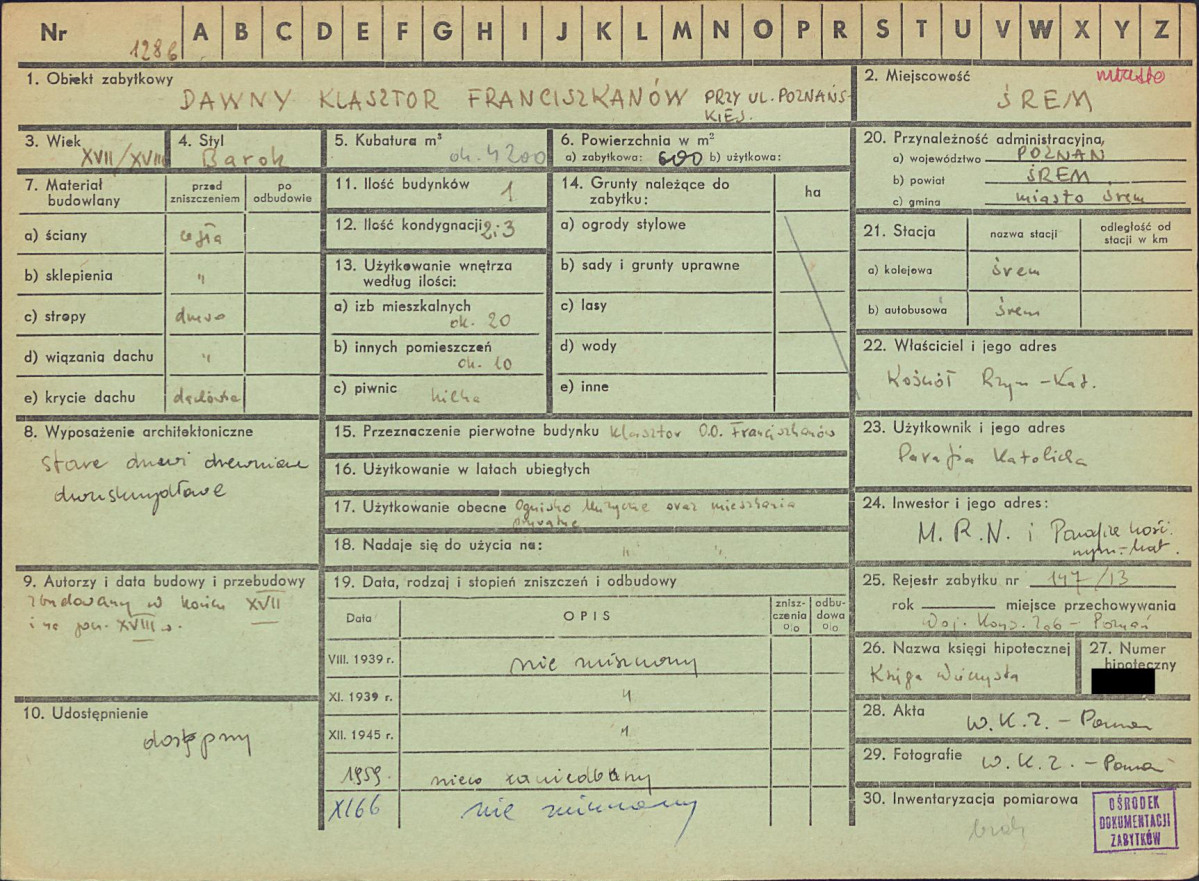 Nr 1286 A B C D E F G H I J K L M N O P R S T U V W X Y Z
1. Obiekt zabytkowy
DAWNY KLASZTOR FRANCISZKANÓW PRZY UL. POZNAŃS-
KIEJ.
2. Miejscowość
miasto
ŚREM
3. Wiek
XVII/XVIII
4. Styl
Barok
5. Kubatura m³
ok. 4200
6. Powierzchnia w m²
a) zabytkowa: 600 b) użytkowa:
7. Materiał budowlany
przed zniszczeniem
po odbudowie
a) ściany cegła
b) sklepienia "
c) stropy drewo
d) wiązania dachu "
e) krycie dachu dachówka
8. Wyposażenie architektoniczne
stare drzwi drewniane
dwuskrzydłowe
9. Autorzy i data budowy i przebudowy
zbudowany w końcu XVII
i na pocz. XVIII w.
10. Udostępnienie
dostępny
11. Ilość budynków 1
12. Ilość kondygnacji 2i3
13. Użytkowanie wnętrza
według ilości:
a) izb mieszkalnych
ok. 20
b) innych pomieszczeń
ok. 10
c) piwnic kilka
14. Grunty należące do
zabytku:
ha
a) ogrody stylowe
b) sady i grunty uprawne
c) lasy
d) wody
e) inne
15. Przeznaczenie pierwotne budynku Klasztor O.O. Franciszkanów
16. Użytkowanie w latach ubiegłych
17. Użytkowanie obecne Ognisko Muzyczne oraz mieszkania
prywatne
18. Nadaje się do użycia na: " "
19. Data, rodzaj i stopień zniszczeń i odbudowy
Data
OPIS
znisz-
czenia
o|o
odbu-
dowa
o|o
VIII. 1939 r. nie zniszczony
XI. 1939 r. "
XII. 1945 r. "
1959. nieco zaniedbany
XI66 nie zniszczony
20. Przynależność administracyjna,
a) województwo POZNAŃ
b) powiat ŚREM
c) gmina miasto Śrem
21. Stacja
nazwa stacji
odległość od
stacji w km
a) kolejowa Śrem
b) autobusowa Śrem
22. Właściciel i jego adres
Kościół Rzym-Kat.
23. Użytkownik i jego adres
Parafia Katolicka
24. Inwestor i jego adres:
M.R.N. i Parafia Kość.
rzym.-kat.
25. Rejestr zabytku nr 147/13
rok miejsce przechowywania
Woj. Kons. Zab - Poznań
26. Nazwa księgi hipotecznej
Księga Wieczysta
27. Numer
hipoteczny
28. Akta
W.K.Z. - Poznań
29. Fotografie W.K.Z. - Poznań
30. Inwentaryzacja pomiarowa
brak
OŚRODEK
DOKUMENTACJI
ZABYTKÓW